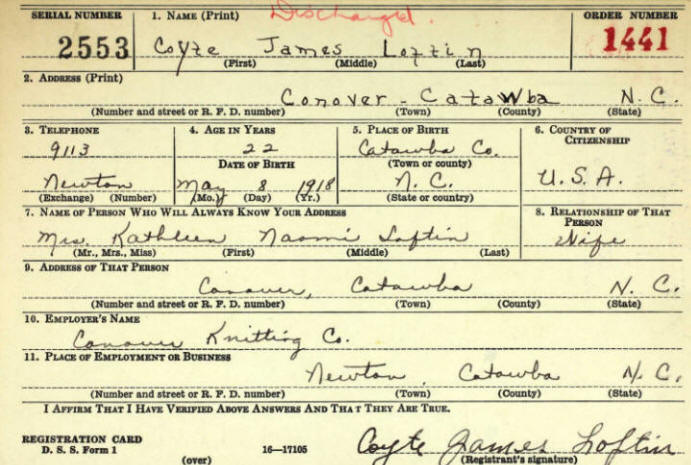 Discharged.
SERIAL NUMBER 1. NAME (Print) ORDER NUMBER
2553 Coyte James Loftin 1441
(First) (Middle) (Last)
2. ADDRESS (Print)
Conover - Catawba N.C.
(Number and street or R. F. D. number) (Town) (County) (State)
3. TELEPHONE 4. AGE IN YEARS 5. PLACE OF BIRTH 6. COUNTRY OF CITIZENSHIP
9113 22 Catawba Co.
DATE OF BIRTH (Town or county)
Newton May 8 1918 N.C. U.S.A.
(Exchange) (Number) (Mo.) (Day) (Yr.) (State or country)
7. NAME OF PERSON WHO WILL ALWAYS KNOW YOUR ADDRESS 8. RELATIONSHIP OF THAT PERSON
Mrs. Kathleen Naomi Loftin Wife
(Mr., Mrs., Miss) (First) (Middle) (Last)
9. ADDRESS OF THAT PERSON
Conover, Catawba N. C.
(Number and street or R. F. D. number) (Town) (County) (State)
10. EMPLOYER'S NAME
Conover Knitting Co.
11. PLACE OF EMPLOYMENT OR BUSINESS
Newton, Catawba N. C.
(Number and street or R. F. D. number) (Town) (County) (State)
I AFFIRM THAT I HAVE VERIFIED ABOVE ANSWERS AND THAT THEY ARE TRUE.
REGISTRATION CARD
D. S. S. Form 1 16—17105 Coyte James Loftin
(over) (Registrant's signature)